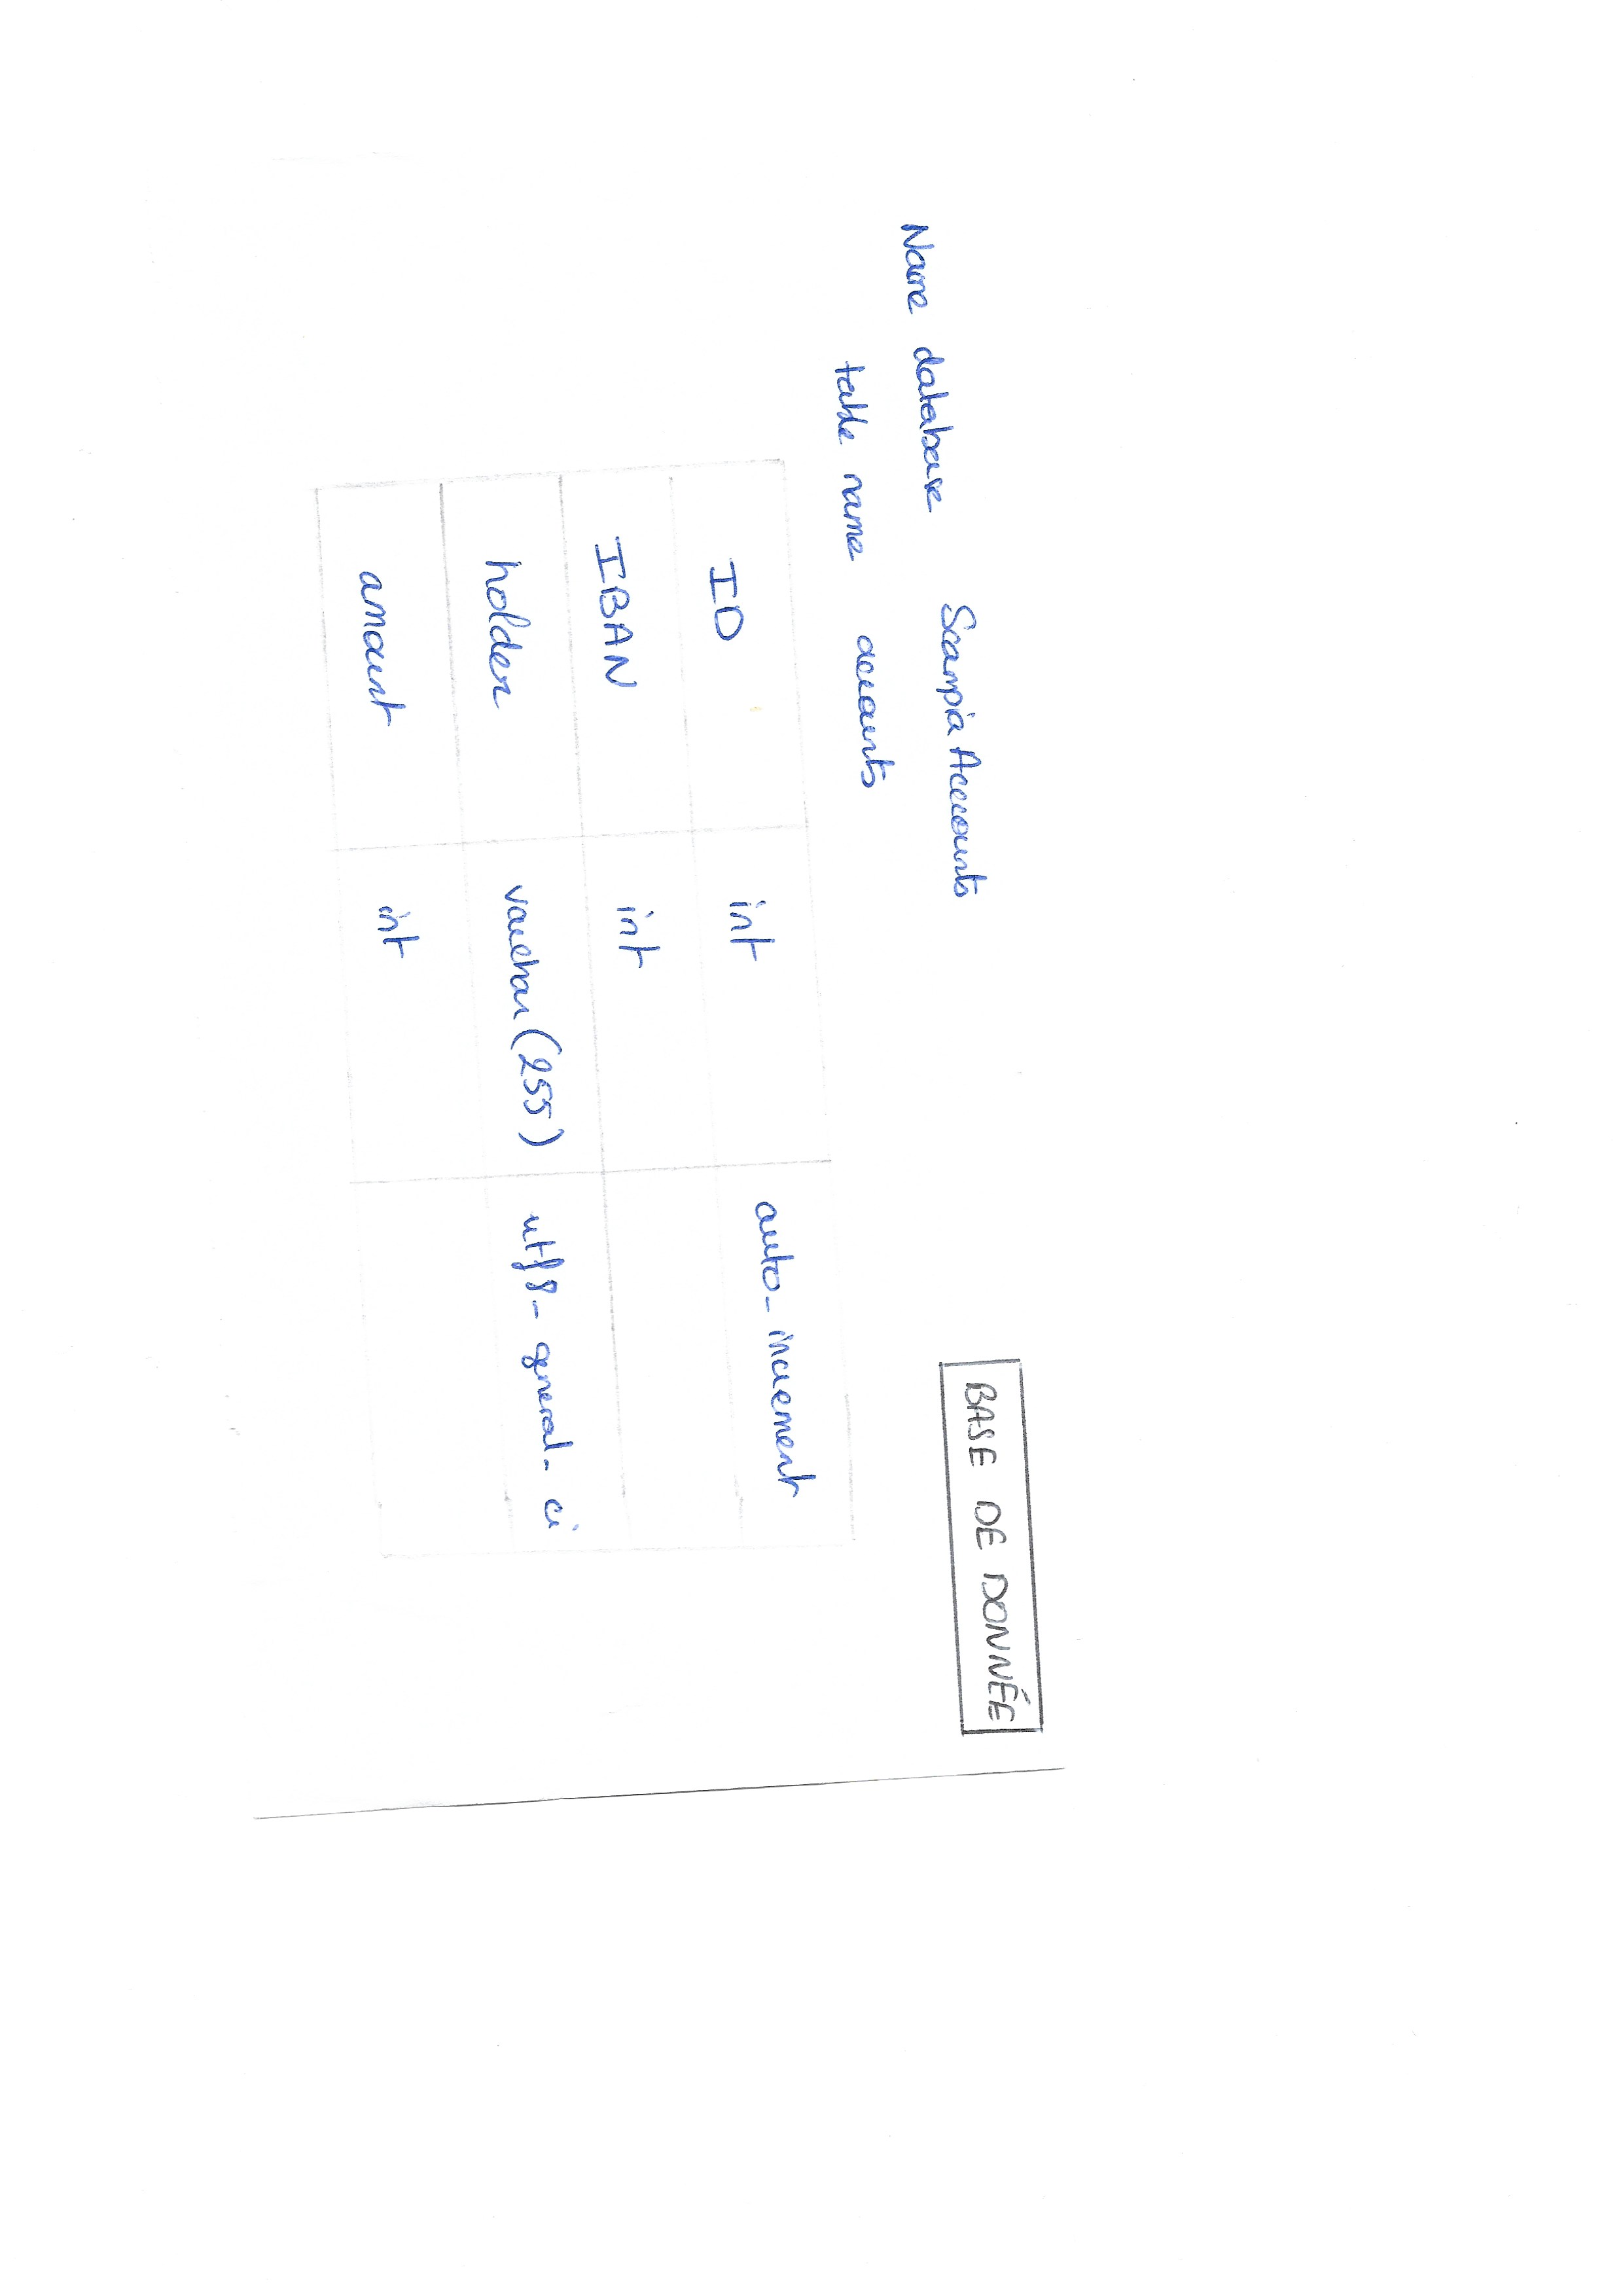 BASE DE DONNÉE
Name database ScampiaAccounts
table name accounts
ID int auto_increment
IBAN int
holder varchar(255) utf8_general_ci
amount int